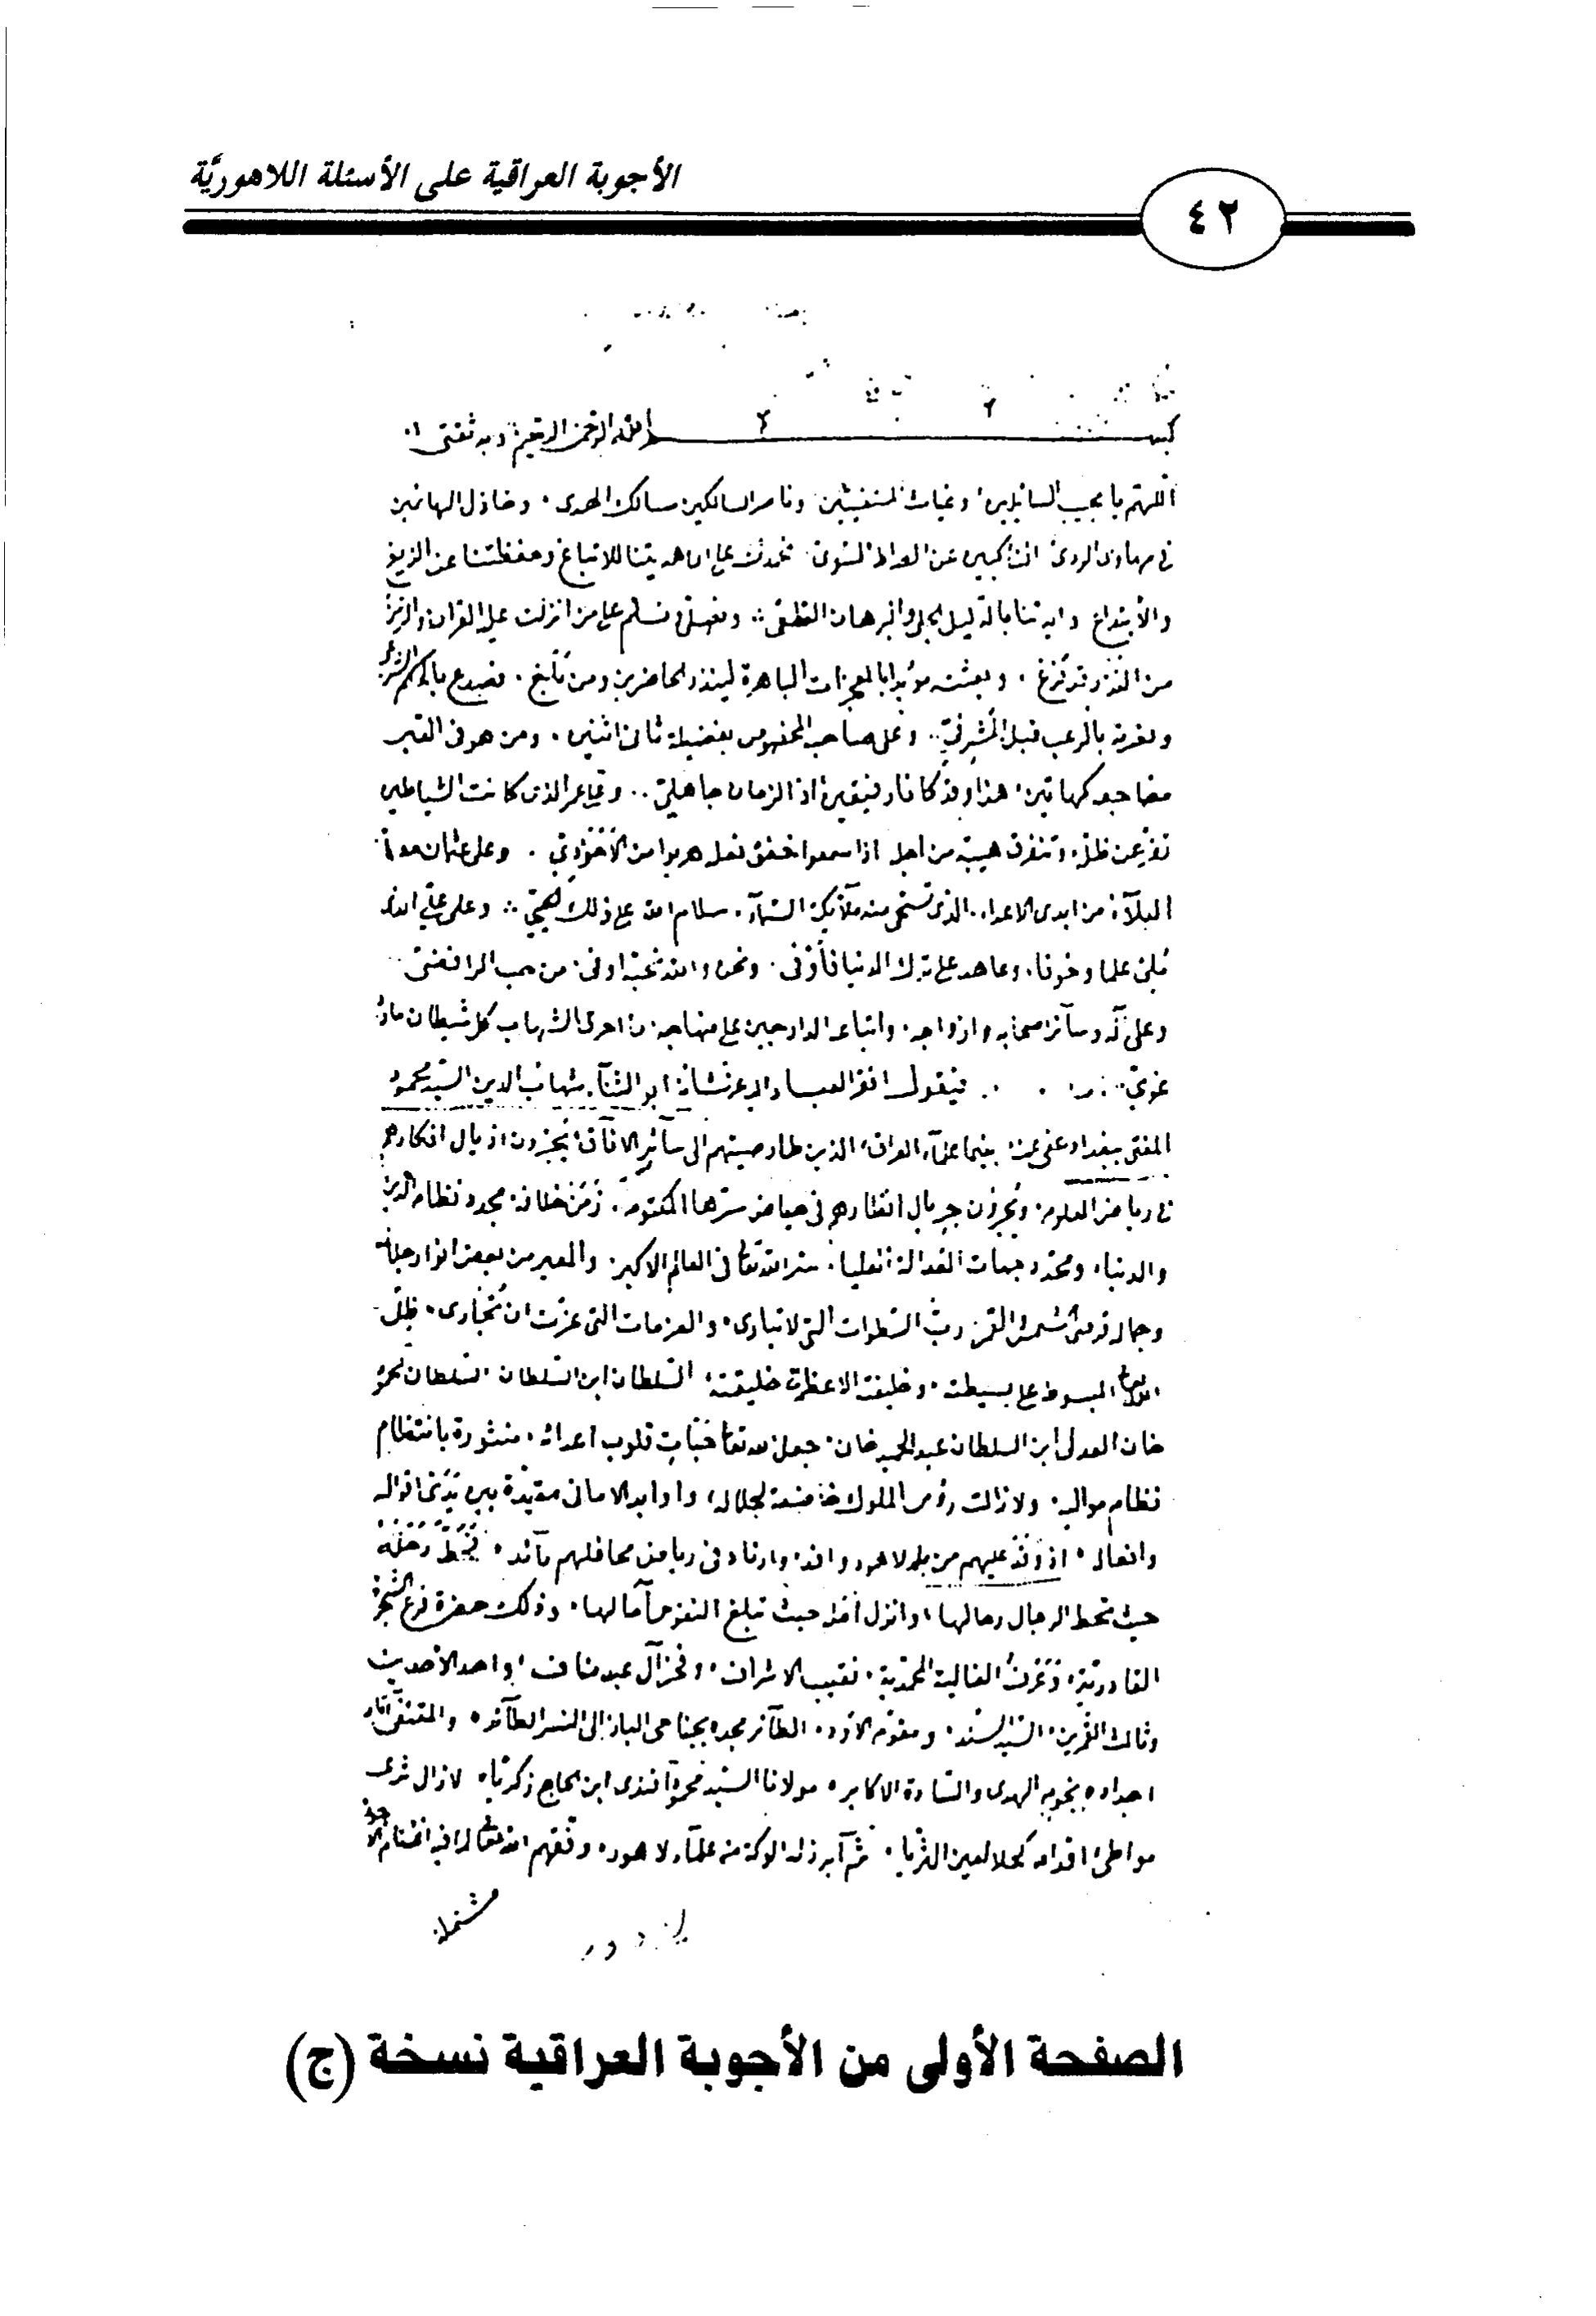 الأجوبة العراقية على الأسئلة اللاهوريَّة
٤٢
بسم الله الرحمن الرحيم وبه ثقتي
اللهم يا مجيب السائلين وغياث المستغيثين وناصر السالكين مسالك الهدى وخاذل الهائمين
في مهاوي الردى عن الصراط السوي نحمدك على ان هديتنا للاتباع وحفظتنا عن الزيغ
والابتداع وايدتنا بالدليل الجلي والبرهان القطعي ونصلي ونسلم على من انزلت عليه القران
من وبعثته مؤيدا بالمعجزات الباهرة لينذر الحاضرين ومن بلغ فصدع بالحكم الشرعي
ونصرته بالرعب قبل المشرفي وعلى صاحبه المخصوص بفضيلة ثاني اثنين ومن هو في القبر
مضاجعه كهاتين هذا وقد كانا رفيقين اذ الزمان جاهلي وعلى عمر الذي كانت الشياطين
تفر من ظله وتتفرق هيبة من اجله اذا سمعوا خفق نعله هربوا من وعلى عثمان
البلاء من ايدي الاعداء الذي تستحي منه ملائكة السماء سلام الله على ذلك الحيي وعلى علي الذي
ملئ علما وخوفا وعاهد على ترك الدنيا فأوفى ونحن والله نحبه اوفى من حب الرافضي
وعلى آله وسائر اصحابه وازواجه واتباعه الدارجين على منهاجه ما احرق الشهاب كل شيطان مارد
غوي فيقول افقر العباد اليه عز شانه ابو الثناء شهاب الدين السيد محمود
المفتي ببغداد عفي عنه بينما علماء العراق الذين طار صيتهم الى سائر الافاق يجرون اذيال افكارهم
في رياض العلوم ويجرون جريال انظارهم في حياض سرها المكتوم زمن خلافة مجدد نظام الدين
والدنيا ومحدد جهات العدالة العليا سر الله تعالى في العالم الاكبر والمعير من بعض انوار جلاله
وجماله قرص الشمس والقمر رب السطوات التي لا تبارى والعزمات التي عزت ان تجارى ظل
الله المبسوط على بسيطته وخليفته الاعظم في خليقته السلطان ابن السلطان السلطان محمود
خان العدلي ابن السلطان عبد الحميد خان جعل الله تعالى حبات قلوب اعدائه منثورة بانتظام
نظام مواليه ولا زالت رؤس الملوك خاضعة لجلاله واوابد الاماني مقيدة بين يدي اقواله
وافعاله اذ وفد عليهم من بلد لاهور وافد وارتاد في رياض محافلهم رائد فحط رحله
حيث تحط الرجال رحالها وانزل حيث تبلغ النفوس آمالها وذلك حضرة فرع الشجرة
القادرية نقيب الاشراف وفخر آل عبد مناف واحد الاحدين
وثالث القمرين السيد السند ومقوم الاود الطائر مجده بجناحي الباز الى النسر الطائر والمقتفى آثار
اجداده نجوم الهدى والسادة الاكابر مولانا السيد محمود افندي ابن الحاج زكريا لا زال ثرى
مواطئ اقدامه كحلا لعين الثريا ثم ابرز له الوكة من علماء لاهور وفقهم الله تعالى لما فيه
مشتملة
الصفحة الأولى من الأجوبة العراقية نسخة (ج)